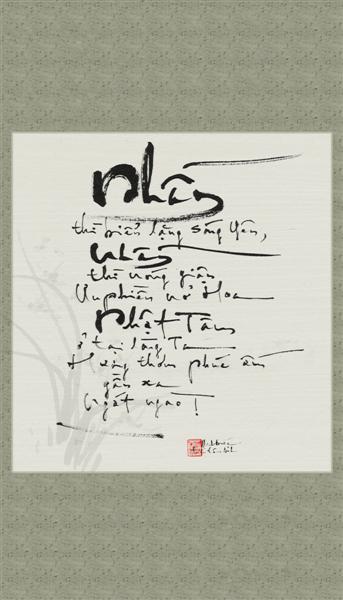 Nhẫn
thì biển lặng sóng yên,
Nhẫn
thì nóng giận
Ưu phiền nở Hoa
Nhật Tâm
ở tại lòng Ta
Hương thơm phúc ấm
gần xa
Ngát ngào !